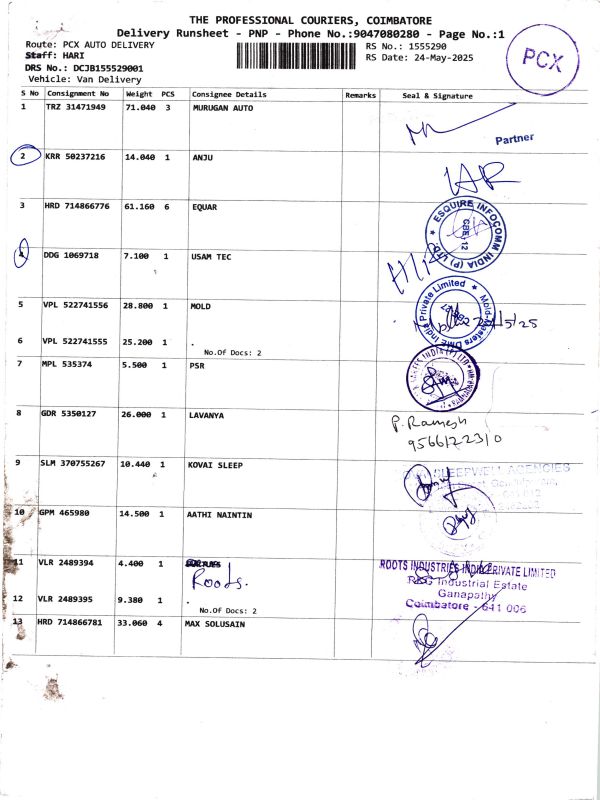 THE PROFESSIONAL COURIERS, COIMBATORE
Delivery Runsheet - PNP - Phone No.:9047080280 - Page No.:1
Route: PCX AUTO DELIVERY
RS No.: 1555290
Staff: HARI
RS Date: 24-May-2025
DRS No.: DCJB155529001
Vehicle: Van Delivery
PCX
S No Consignment No Weight PCS Consignee Details Remarks Seal & Signature
1 TRZ 31471949 71.040 3 MURUGAN AUTO
Partner
2 KRR 50237216 14.040 1 ANJU
3 HRD 714866776 61.160 6 EQUAR
ESQUIRE INFOCOMM INDIA (P) LTD.
CBE-12
4 DDG 1069718 7.100 1 USAM TEC
5 VPL 522741556 28.800 1 MOLD
Mold-Masters DME India Private Limited
6 VPL 522741555 25.200 1 .
No.Of Docs: 2
7 MPL 535374 5.500 1 PSR
8 GDR 5350127 26.000 1 LAVANYA
P. Ramesh
9566122310
9 SLM 370755267 10.440 1 KOVAI SLEEP
SLEEPWELL AGENCIES
10 GPM 465980 14.500 1 AATHI NAINTIN
11 VLR 2489394 4.400 1
Roots.
ROOTS INDUSTRIES INDIA PRIVATE LIMITED
Industrial Estate
Ganapathy
Coimbatore - 641 006
12 VLR 2489395 9.380 1 .
No.Of Docs: 2
13 HRD 714866781 33.060 4 MAX SOLUSAIN